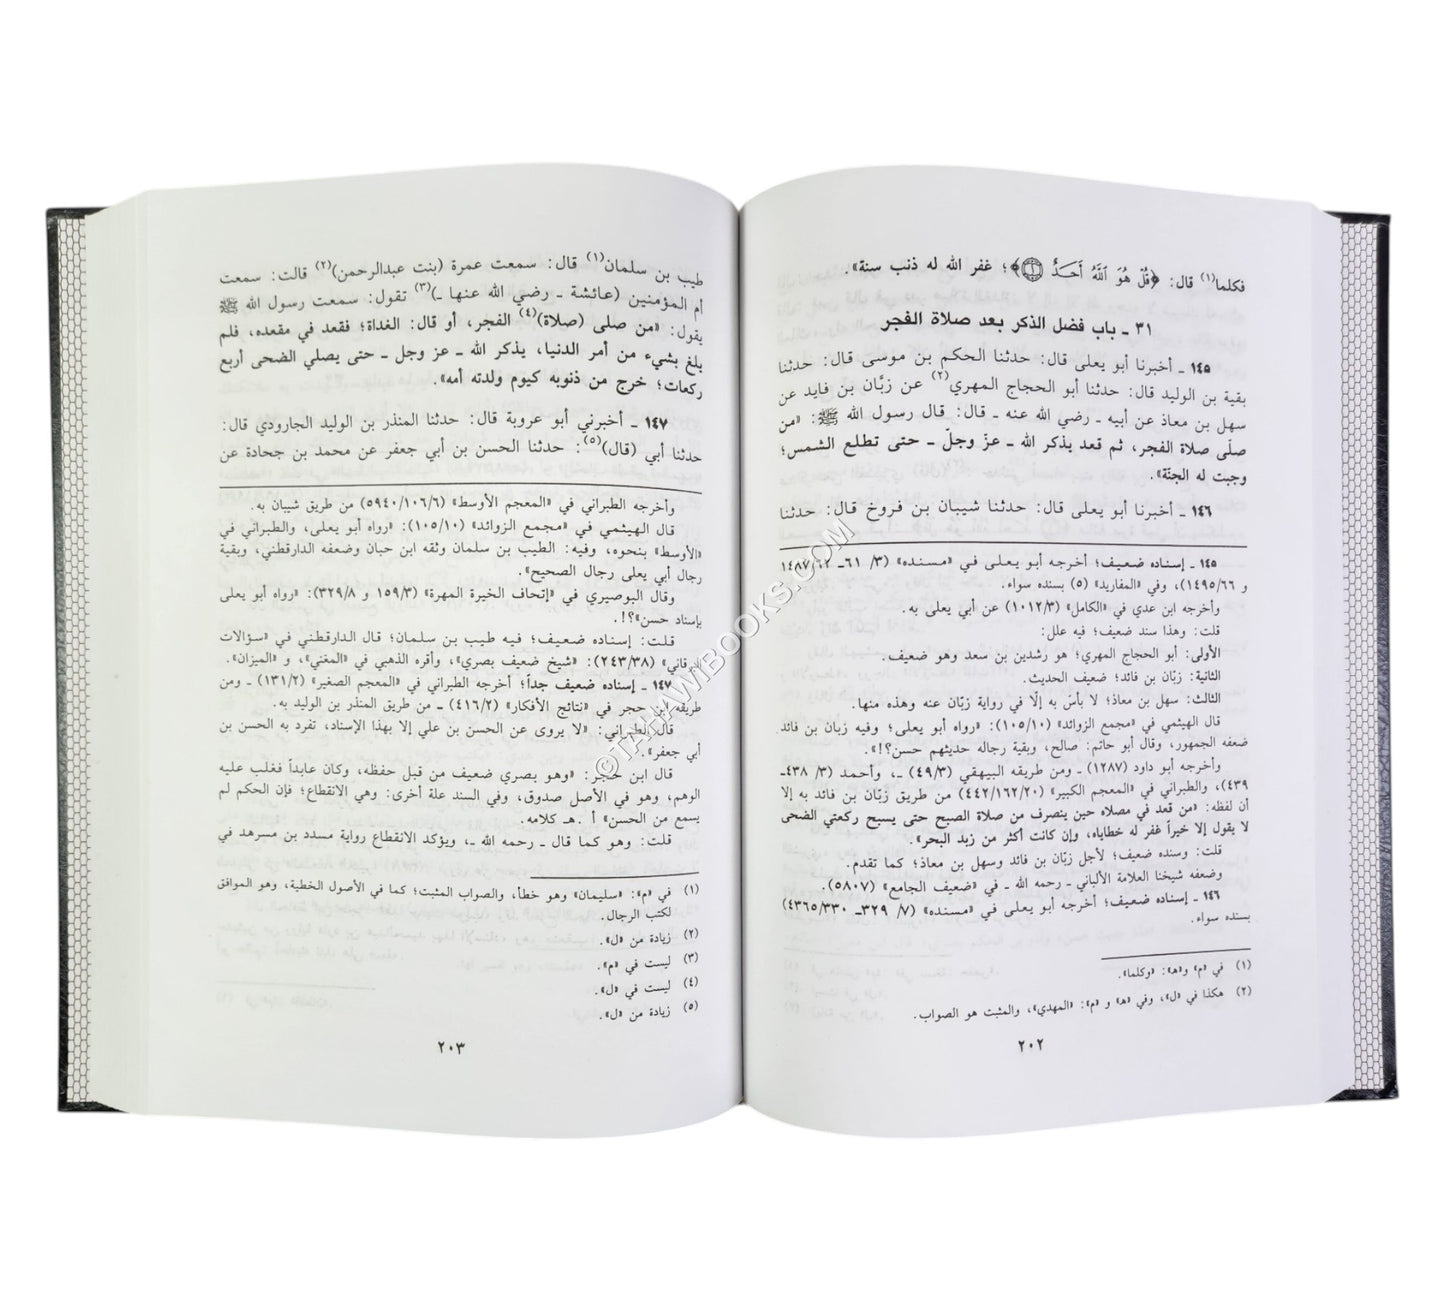 فكلما(١) قال: ﴿قُلْ هُوَ اللَّهُ أَحَدٌ ۝١﴾؛ غفر الله له ذنب سنة».
٣١ ـ باب فضل الذكر بعد صلاة الفجر
١٤٥ ـ أخبرنا أبو يعلى قال: حدثنا الحكم بن موسى قال: حدثنا
بقية بن الوليد قال: حدثنا أبو الحجاج المهري(٢) عن زبَّان بن فايد عن
سهل بن معاذ عن أبيه ـ رضي الله عنه ـ قال: قال رسول الله ﷺ: «من
صلّى صلاة الفجر، ثم قعد يذكر الله ـ عزّ وجلّ ـ حتى تطلع الشمس؛
وجبت له الجنّة».
١٤٦ ـ أخبرنا أبو يعلى قال: حدثنا شيبان بن فروخ قال: حدثنا
١٤٥ ـ إسناده ضعيف؛ أخرجه أبو يعلى في «مسنده» (٣/ ٦١ـ ١٤٨٧/٦٢
و ١٤٩٥/٦٦)، وفي «المفاريد» (٥) بسنده سواء.
وأخرجه ابن عدي في «الكامل» (١٠١٢/٣) عن أبي يعلى به.
قلت: وهذا سند ضعيف؛ فيه علل:
الأولى: أبو الحجاج المهري؛ هو رشدين بن سعد وهو ضعيف.
الثانية: زبّان بن فائد؛ ضعيف الحديث.
الثالث: سهل بن معاذ؛ لا بأسَ به إلّا في رواية زبّان عنه وهذه منها.
قال الهيثمي في «مجمع الزوائد» (١٠٥/١٠): «رواه أبو يعلى؛ وفيه زبان بن فائد
ضعفه الجمهور، وقال أبو حاتم: صالح، وبقية رجاله حديثهم حسن»؟!.
وأخرجه أبو داود (١٢٨٧) ـ ومن طريقه البيهقي (٤٩/٣) ـ، وأحمد (٣/ ٤٣٨ـ
٤٣٩)، والطبراني في «المعجم الكبير» (٤٤٢/١٦٢/٢٠) من طريق زبّان بن فائد به إلا
أن لفظه: «من قعد في مصلاه حين ينصرف من صلاة الصبح حتى يسبح ركعتي الضحى
لا يقول إلا خيراً غفر له خطاياه، وإن كانت أكثر من زبد البحر».
قلت: وسنده ضعيف؛ لأجل زبّان بن فائد وسهل بن معاذ؛ كما تقدم.
وضعفه شيخنا العلامة الألباني ـ رحمه الله ـ في «ضعيف الجامع» (٥٨٠٧).
١٤٦ ـ إسناده ضعيف؛ أخرجه أبو يعلى في «مسنده» (٧/ ٣٢٩ـ ٤٣٦٥/٣٣٠)
بسنده سواء.
(١) في «م» و«هـ»: «وكلما».
(٢) هكذا في «ل»، وفي «هـ» و «م»: «المهدي»، والمثبت هو الصواب.
٢٠٢
طيب بن سلمان(١) قال: سمعت عمرة (بنت عبدالرحمن)(٢) قالت: سمعت
أم المؤمنين (عائشة ـ رضي الله عنها ـ)(٣) تقول: سمعت رسول الله ﷺ
يقول: «من صلى (صلاة)(٤) الفجر، أو قال: الغداة؛ فقعد في مقعده، فلم
يلغ بشيء من أمر الدنيا، يذكر الله ـ عز وجل ـ حتى يصلي الضحى أربع
ركعات؛ خرج من ذنوبه كيوم ولدته أمه».
١٤٧ ـ أخبرني أبو عروبة قال: حدثنا المنذر بن الوليد الجارودي قال:
حدثنا أبي (قال)(٥): حدثنا الحسن بن أبي جعفر عن محمد بن جحادة عن
وأخرجه الطبراني في «المعجم الأوسط» (٥٩٤٠/١٠٦/٦) من طريق شيبان به.
قال الهيثمي في «مجمع الزوائد» (١٠٥/١٠): «رواه أبو يعلى، والطبراني في
«الأوسط» بنحوه، وفيه: الطيب بن سلمان وثقه ابن حبان وضعفه الدارقطني، وبقية
رجال أبي يعلى رجال الصحيح».
وقال البوصيري في «إتحاف الخيرة المهرة» (١٥٩/٣ و ٣٢٩/٨): «رواه أبو يعلى
بإسناد حسن»؟!.
قلت: إسناده ضعيف؛ فيه طيب بن سلمان؛ قال الدارقطني في «سؤالات
البرقاني» (٢٤٣/٣٨): «شيخ ضعيف بصري»، وأقره الذهبي في «المغني»، و «الميزان».
١٤٧ ـ إسناده ضعيف جداً؛ أخرجه الطبراني في «المعجم الصغير» (١٣١/٢) ـ ومن
طريقه ابن حجر في «نتائج الأفكار» (٤١٦/٢) ـ من طريق المنذر بن الوليد به.
قال الطبراني: «لا يروى عن الحسن بن علي إلا بهذا الإسناد، تفرد به الحسن بن
أبي جعفر».
قال ابن حجر: «وهو بصري ضعيف من قبل حفظه، وكان عابداً فغلب عليه
الوهم، وهو في الأصل صدوق، وفي السند علة أخرى: وهي الانقطاع؛ فإن الحكم لم
يسمع من الحسن» أ . هـ كلامه.
قلت: وهو كما قال ـ رحمه الله ـ، ويؤكد الانقطاع رواية مسدد بن مسرهد في
(١) في «م»: «سليمان» وهو خطأ، والصواب المثبت؛ كما في الأصول الخطية، وهو الموافق
لكتب الرجال.
(٢) زيادة من «ل».
(٣) ليست في «م».
(٤) ليست في «ل».
(٥) زيادة من «ل».
٢٠٣
©TAHAWIBOOKS.COM